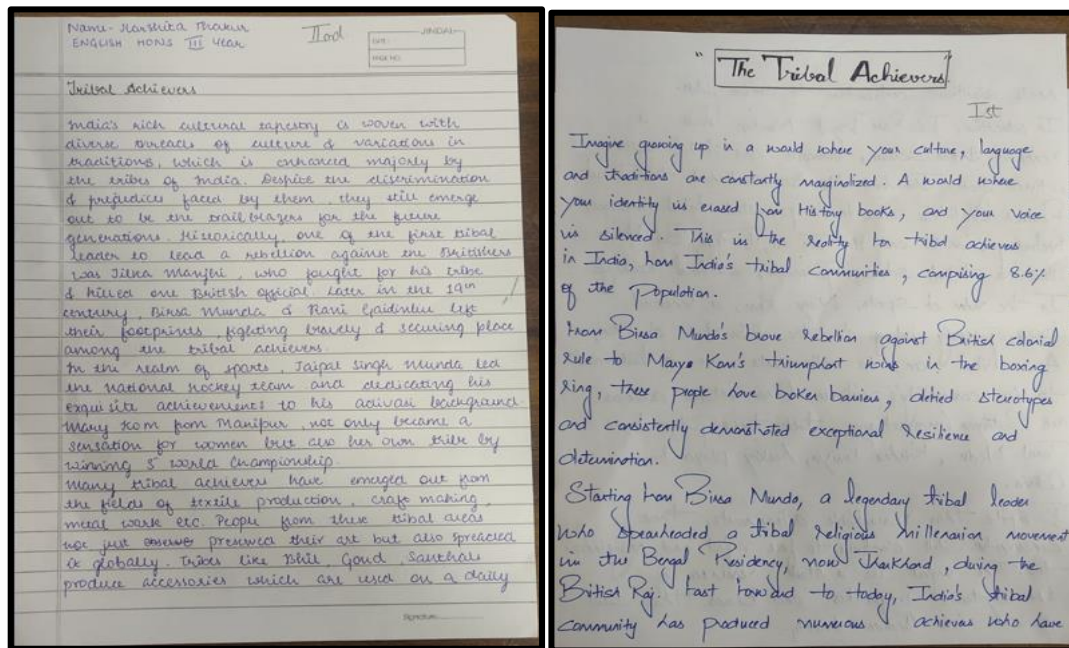 Name- Harshita Thakur
ENGLISH HONS III Year
IInd
JINDAL
DATE:
PAGE NO.
Tribal Achievers
India's rich cultural tapestry is woven with
diverse threads of culture & variations in
traditions, which is enhanced majorly by
the tribes of India. Despite the discrimination
& prejudices faced by them, they still emerge
out to be the trail blazers for the future
generations. Historically, one of the first tribal
leader to lead a rebellion against the Britishers
was Tilka Manjhi, who fought for his tribe
& killed one British official. Later in the 19th
century, Birsa Munda & Rani Gaidinliu left
their footprints, fighting bravely & securing place
among the tribal achievers.
In the realm of sports, Jaipal Singh Munda led
the national hockey team and dedicating his
exquisite achievements to his adivasi background.
Mary Kom from Manipur, not only became a
sensation for women but also her own tribe by
winning world championship.
Many tribal achievers have emerged out from
the fields of textile production, craft making,
metal work etc. People from these tribal areas
not just preserved their art but also spreaded
it globally. Tribes like Bhil, Gond, Santhals
produce accessories which are used on a daily
Signature
"The Tribal Achievers"
Ist
Imagine growing up in a world where your culture, language
and traditions are constantly marginalized. A world where
your identity is erased from History books, and your voice
is silenced. This is the reality for tribal achieves
in India, from India's tribal communities, comprising 8.6%
of the Population.
From Birsa Munda's brave rebellion against British colonial
rule to Marys Kom's triumphant wins in the boxing
ring, these people have broken barriers, defied stereotypes
and consistently demonstrated exceptional resilience and
determination.
Starting from Birsa Munda, a legendary tribal leader
who spearheaded a tribal religious millenarian movement
in the Bengal Presidency, now Jharkhand, during the
British Raj. Fast forward to today, India's tribal
community has produced numerous achievers who have